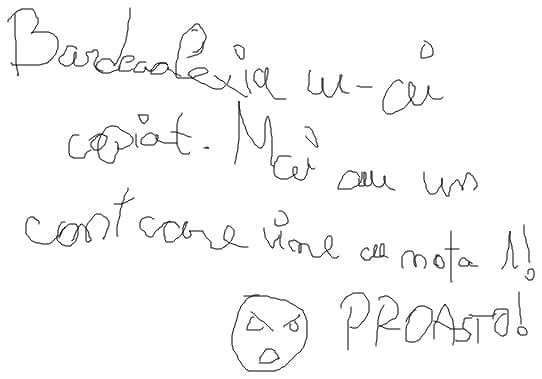 m-ai
copiat. Mai au un
cont care vine cu nota 1!
PROASTO!